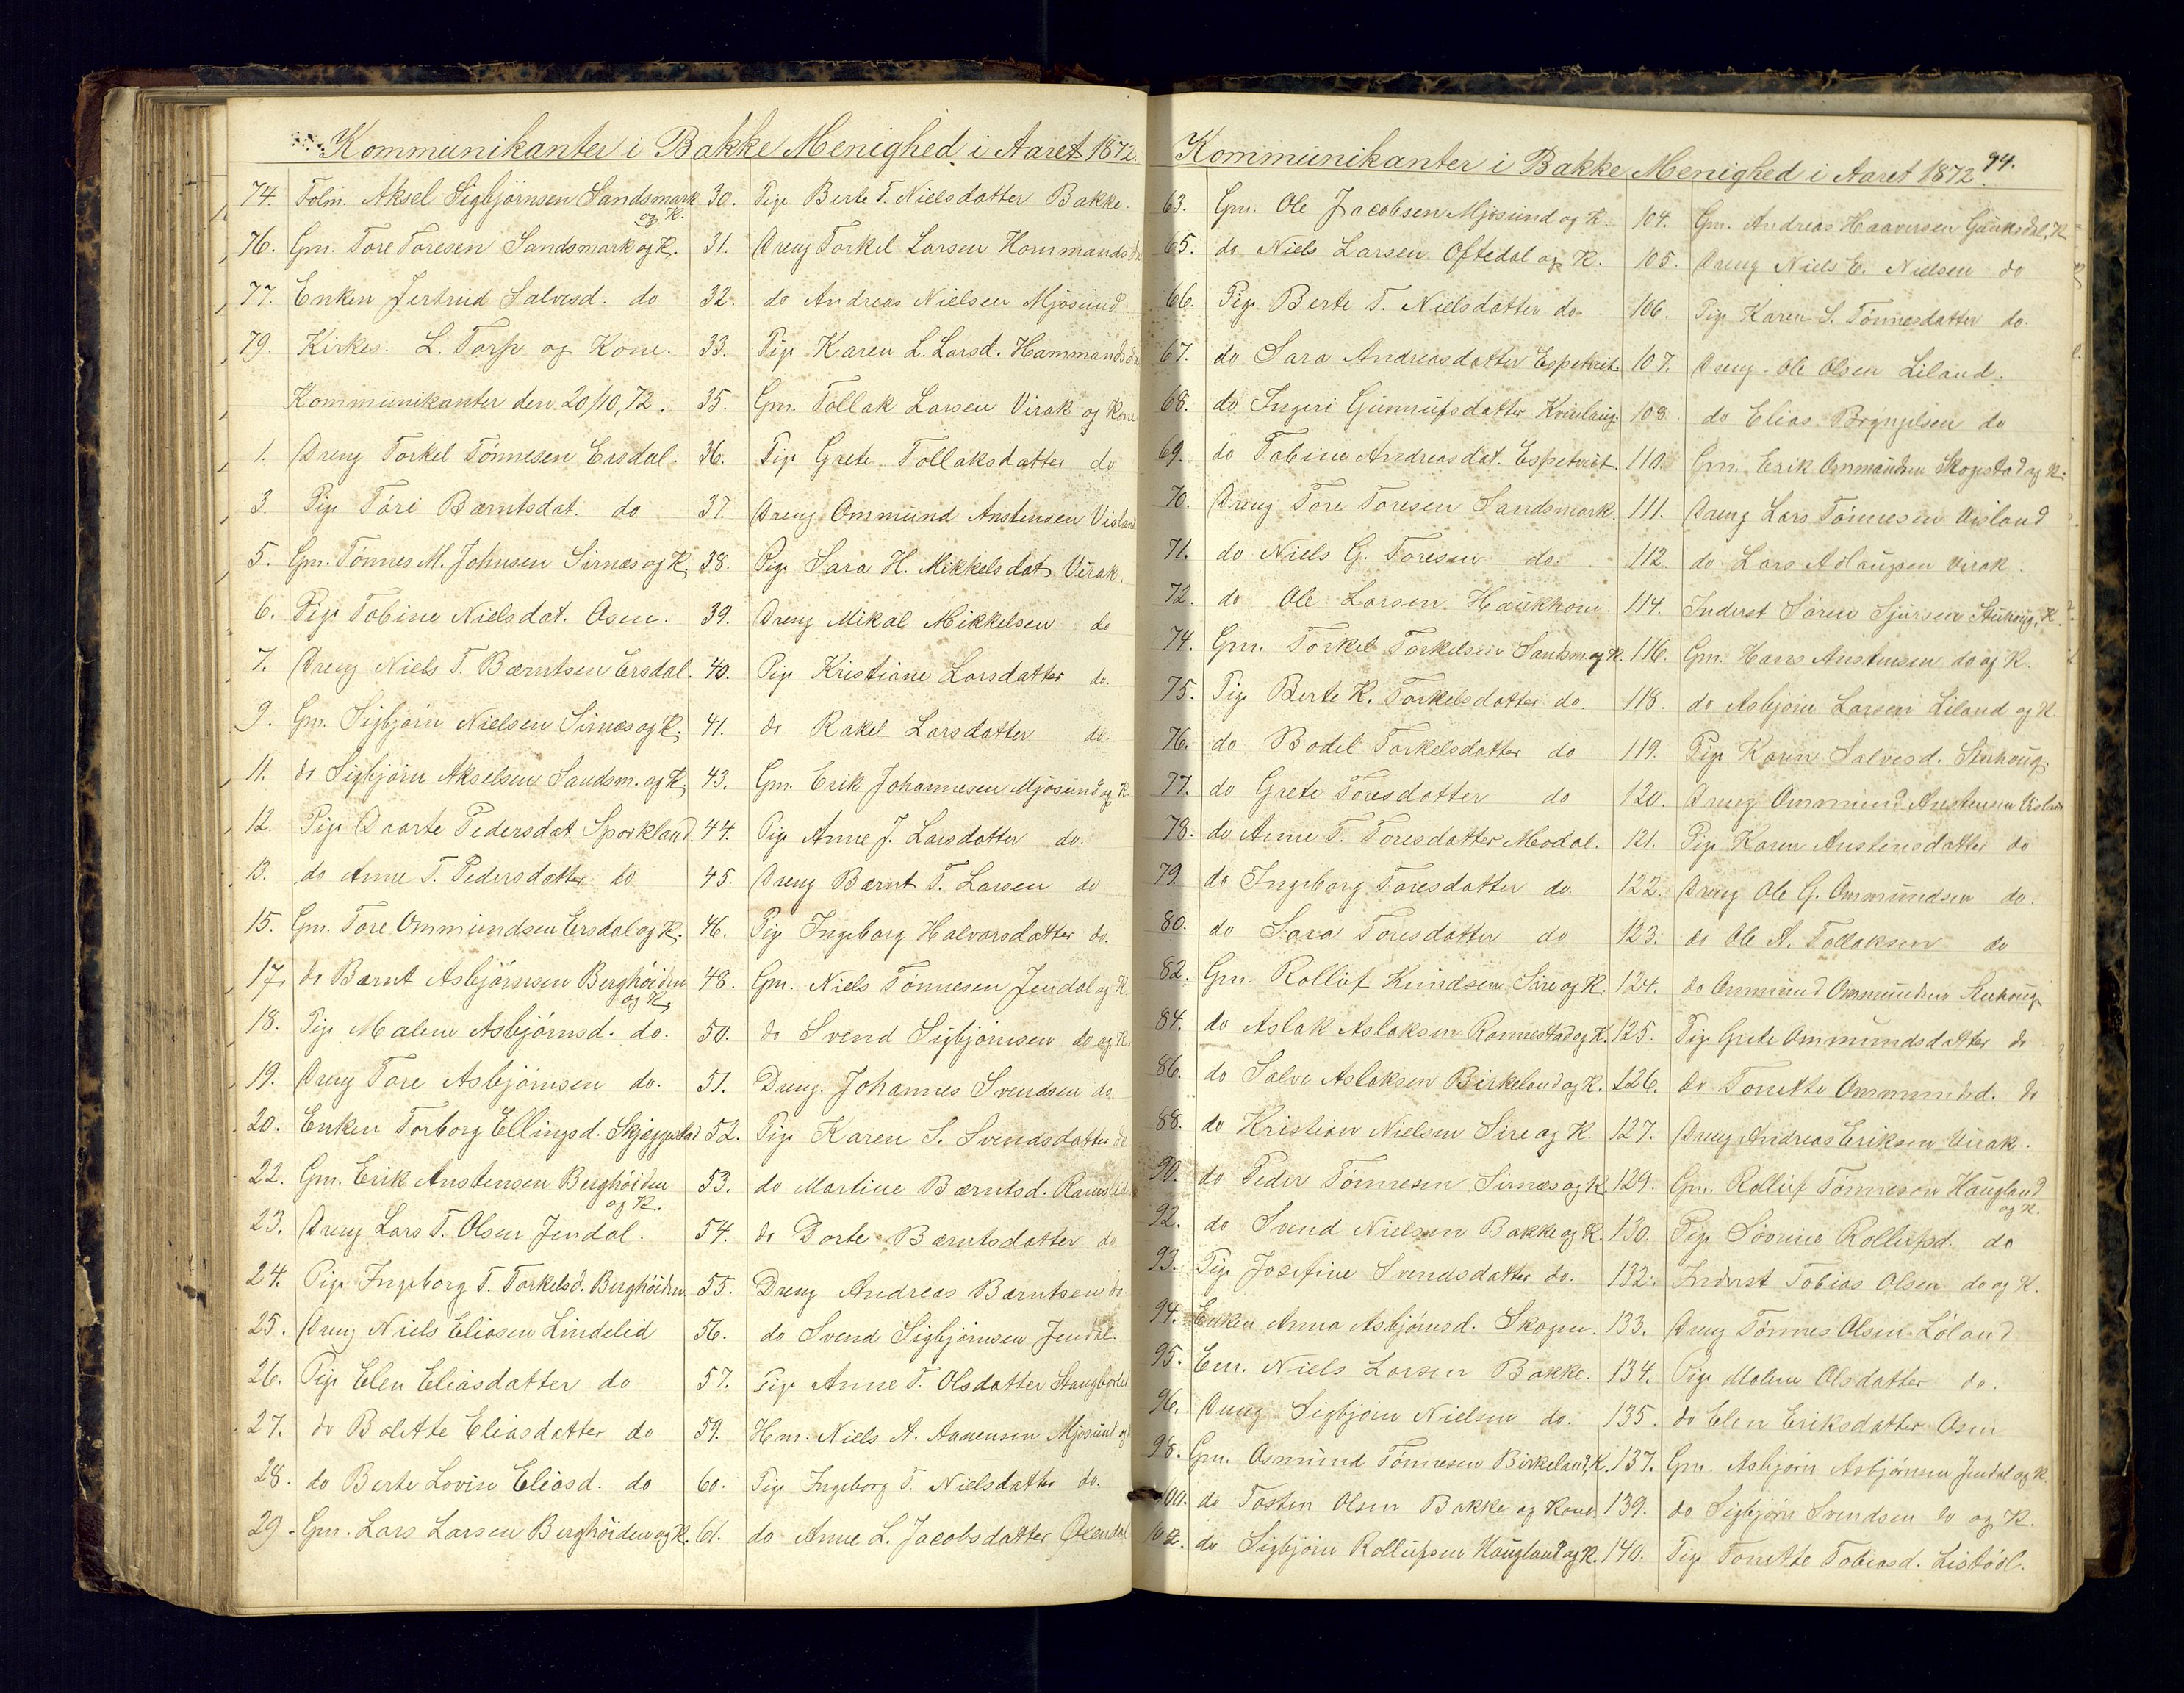 Kommunikanter i Bakke Menighed i Aaret 1872.
74. Folm. Aksel Sigbjörnsen Sandsmark
og K.
76. Gm. Tore Toresen Sandsmark og K.
77. Enken Jertrud Salvesd. do
79. Kirkes. L. Torp og Kone.
Kommunikanter den 20/10, 72.
1. Dreng Torkel Tönnesen Ersdal.
3. Pige Tóri Bærntsdat. do
5. Gm. Tönnes M. Johnsen Sirnæs og K.
6. Pige Tobine Nielsdat. Osen.
7. Dreng Niels T. Bærntsen Ersdal.
9. Gm. Sigbjörn Nielsen Sirnæs og K.
11. do Sigbjörn Akselsen Sandsm. og K.
12. Pige Daarte Pedersdat. Sporkland.
13. do Anne T. Pedersdatter do
15. Gm. Tore Ommundsen Ersdal og K.
17. do Bærnt Asbjörnsen Berghöiden
og K.
18. Pige Malene Asbjörnsd. do.
19. Dreng Tore Asbjörnsen do.
20. Enken Torborg Ellingsd. Skjeggestad
22. Gm. Erik Anstensen Berghöiden
og K.
23. Dreng Lars T. Olsen Jendal.
24. Pige Ingeborg T. Torkelsd. Berghöiden
25. Dreng Niels Eliasen Lindelid
26. Pige Elen Eliasdatter do
27. do Bolette Eliasdatter do
28. do Berte Lovise Eliasd. do
29. Gm. Lars Larsen Berghöiden og K.
30. Pige Berte T. Nielsdatter Bakke.
31. Dreng Torkel Larsen Hommands
32. do Andreas Nielsen Mjösund.
33. Pige Karen L. Larsd. Hammands
35. Gm. Tollak Larsen Virak og Kone
36. Pige Grete Tollaksdatter do
37. Dreng Ommund Anstensen Visland
38. Pige Sara H. Mikkelsdat. Virak.
39. Dreng Mikal Mikkelsen do
40. Pige Kristiane Larsdatter do.
41. do Rakel Larsdatter do.
43. Gm. Erik Johannesen Mjösund og K
44. Pige Anne J. Larsdatter do.
45. Dreng Bærnt T. Larsen do
46. Pige Ingeborg Halvorsdatter do.
48. Gm. Niels Tönnesen Jendal og K
50. do Svend Sigbjörnsen do og K.
51. Dreng. Johannes Svendsen do.
52. Pige Karen S. Svendsdatter do
53. do Martine Bærntsd. Ramslid
54. do Dorte Bærntsdatter do.
55. Dreng Andreas Bærntsen do
56. do Svend Sigbjörnsen Jendal.
57. Pige Anne T. Olsdatter
59. Hm. Niels A. Aanensen Mjösund og
60. Pige Ingeborg T. Nielsdatter do.
61. do Anne L. Jacobsdatter Öxendal
Kommunikanter i Bakke Menighed i Aaret 1872. 94.
63. Gm. Ole Jacobsen Mjösund og K.
65. do Niels Larsen Oftedal og K.
66. Pige Berte T. Nielsdatter do
67. do Sara Andreasdatter Espetveit.
68. do Ingeri Gunnufsdatter Kvinlaug.
69. do Tobine Andreasdat. Espetveit
70. Dreng Tore Toresen Sandsmark.
71. do Niels G. Toresen do.
72. do Ole Larsen Haukhom.
74. Gm. Torkel Torkelsen Sandsm. og K.
75. Pige Berte K. Torkelsdatter do.
76. do Bodel Torkelsdatter do
77. do Grete Toresdatter do
78. do Anne T. Toresdatter Modal.
79. do Ingeborg Toresdatter do.
80. do Sara Toresdatter do
82. Gm. Rolluf Knudsen Sire og K.
84. do Aslak Aslaksen Rannestad og K.
86. do Salve Aslaksen Birkeland og K.
88. do Kristian Nielsen Sire og K.
90. do Peder Tönnesen Sirnæs og K.
92. do Svend Nielsen Bakke og K.
93. Pige Josefine Svendsdatter do.
94. Enken Anna Asbjörnsd. Skogen.
95. Em. Niels Larsen Bakke.
96. Dreng Sigbjörn Nielsen do.
98. Gm. Osmund Tönnesen Birkeland, K.
100. do Tosten Olsen Bakke og Kone
102. do Sigbjörn Rollufsen Haugland og K.
104. Gm. Andreas Haaversen Gauksdal, K
105. Dreng Niels E. Nielsen do
106. Pige Karen S. Tönnesdatter do.
107. Dreng Ole Olsen Liland.
108. do Elias Bryngelsen do
110. Gm. Erik Ommundsen Skogstad og K.
111. Dreng Lars Tönnesen Visland
112. do Lars Adlaugsen Virak.
114. Inderst Sören Sjursen Stuhoug, K.
116. Gm. Hans Anstensen do og K.
118. do Asbjörn Larsen Liland og K.
119. Pige Karen Salvesd. Stuhoug.
120. Dreng Ommund Anstensen Visland
121. Pige Karen Anstensdatter do
122. Dreng Ole G. Ommundsen do.
123. do Ole A. Tollaksen do
124. do Ommund Ommundsen Stuhoug
125. Pige Grete Ommundsdatter do
126. do Tonette Ommundsd. do
127. Dreng Andreas Eriksen Virak.
129. Gm. Rolluf Tönnesen Haugland
og K.
130. Pige Sövrine Rollufsd. do
132. Inderst Tobias Olsen do og K.
133. Dreng Tönnes Olsen Löland
134. Pige Malene Olsdatter do.
135. do Elen Eriksdatter Osen
137. Gm. Asbjörn Asbjörnsen Jendal og K.
139. do Sigbjörn Svendsen do og K.
140. Pige Tonette Tobiasd. Listöl.